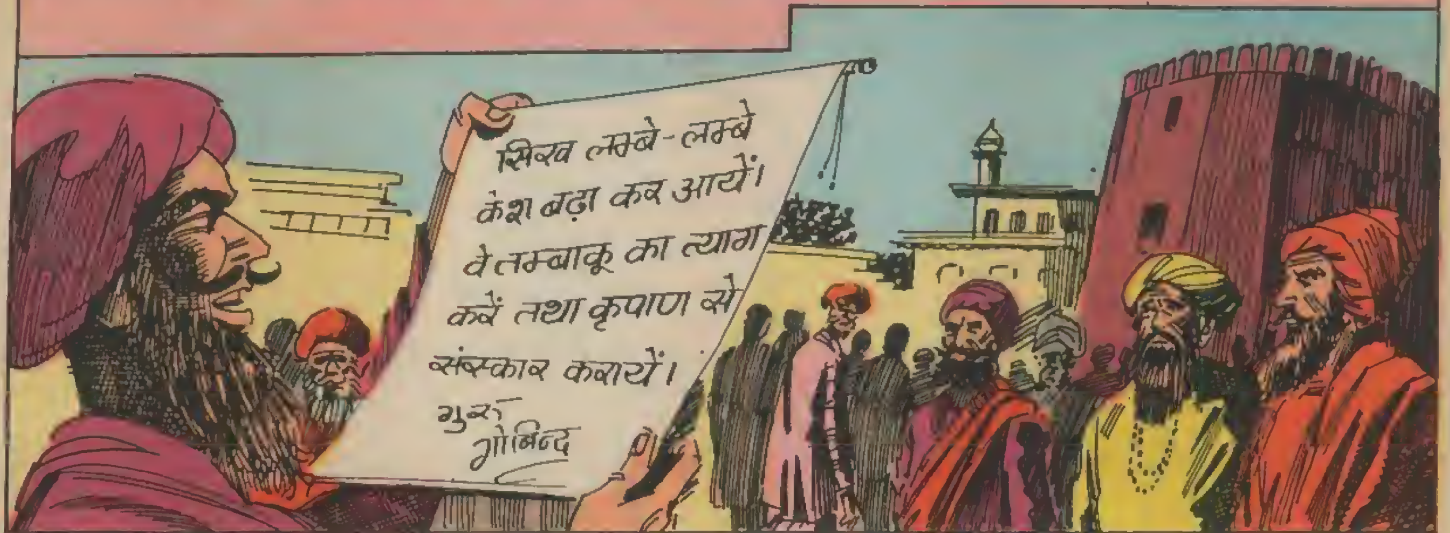 सिख लम्बे-लम्बे
केश बढ़ा कर आयें।
वे तम्बाकू का त्याग
करें तथा कृपाण से
संस्कार करायें।
गुरु
गोबिन्द